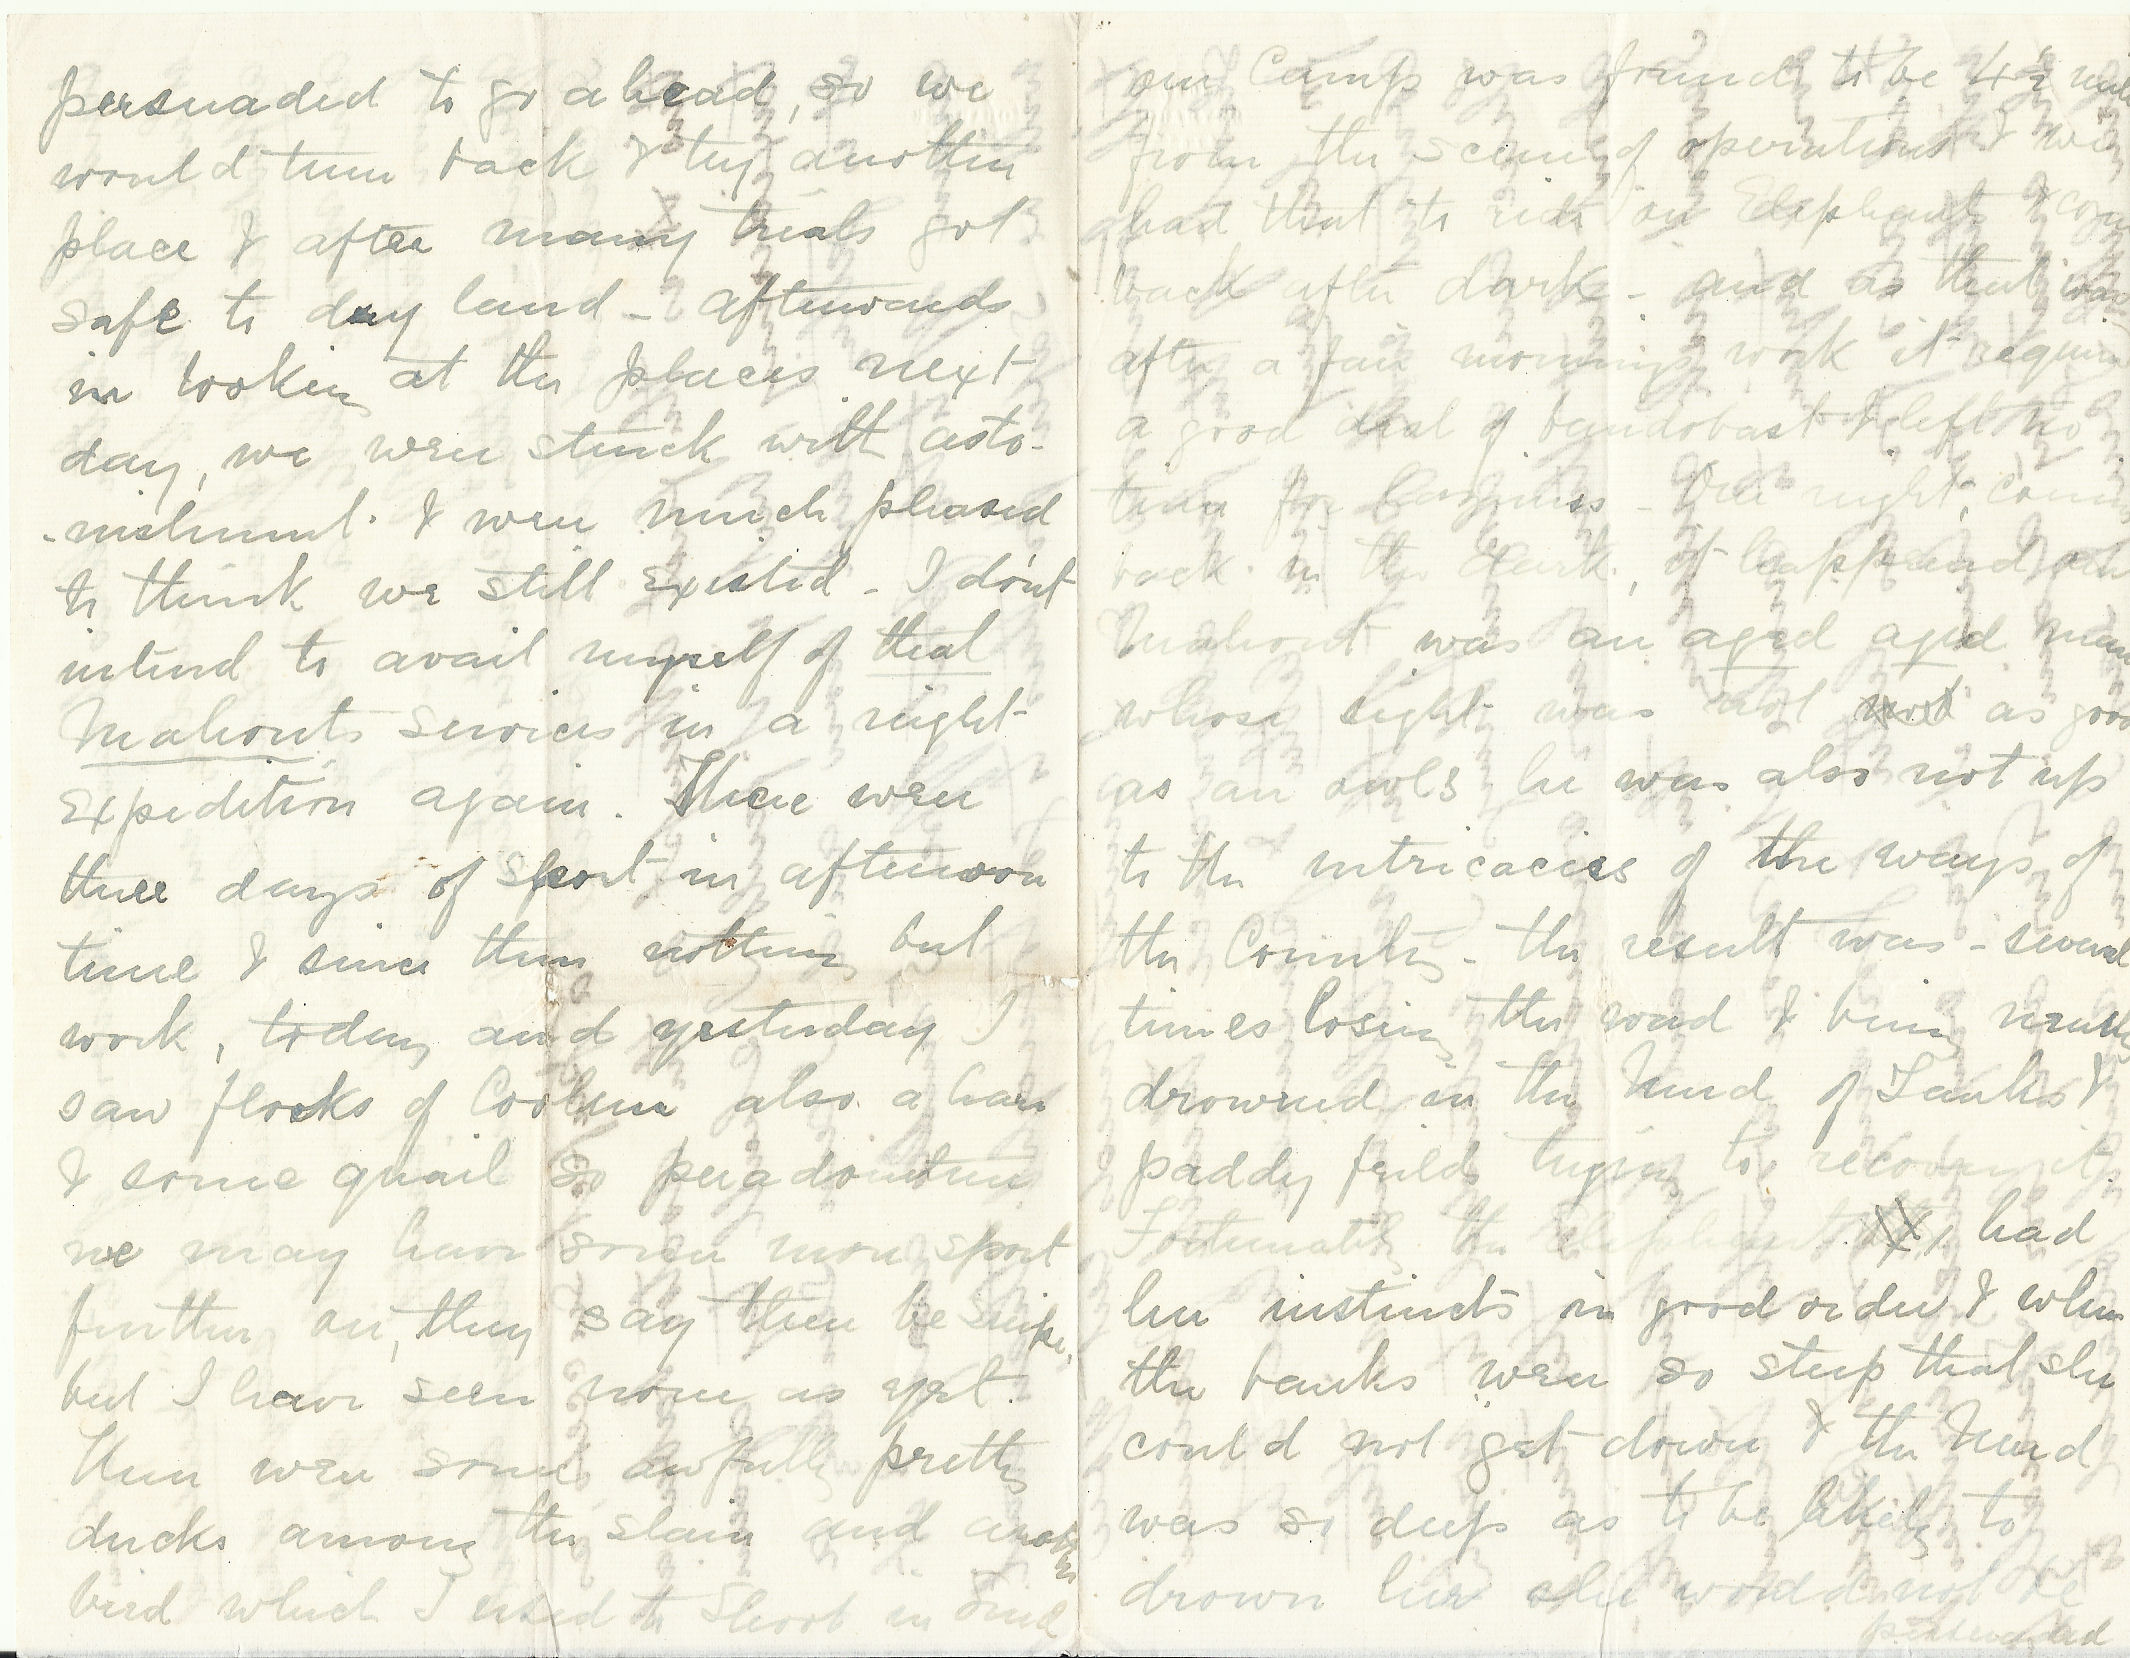 persuaded to go ahead, so we
would turn back & try another
place & after many trials got
safe to dry land - afterwards
in looking at the places next
day, we were struck with asto-
-nishment. & were much pleased
to think we still existed - I don't
intend to avail myself of that
Mahouts services in a night
Expedition again. There were
three days of sport in afternoon
time & since then nothing but
work, today and yesterday I
saw flocks of Coolun also a hare
& some quail so peradventure
we may have some more sport
further on, they say there be snipe,
but I have seen none as yet.
There were some awfully pretty
ducks among the slain and another
bird which I used to shoot in Sind
our Camp was found to be 4½ miles
from the scene of operations & we
had that to ride on Elephants & come
back after dark - and as that was
after a fair mornings work it required
a good deal of bandobast & left no
time for laziness - One night, coming
back in the dark, it happened our
Mahout was an aged aged man
whose sight was not as good
as an owls he was also not up
to the intricacies of the ways of
the Country - the result was - several
times losing the road & being nearly
drowned in the Mud of Tanks &
paddy feilds trying to recover it.
Fortunately the Elephant had
her instincts in good order & when
the banks were so steep that she
could not get down & the Mud
was so deep as to be likely to
drown her she would not be
persuaded